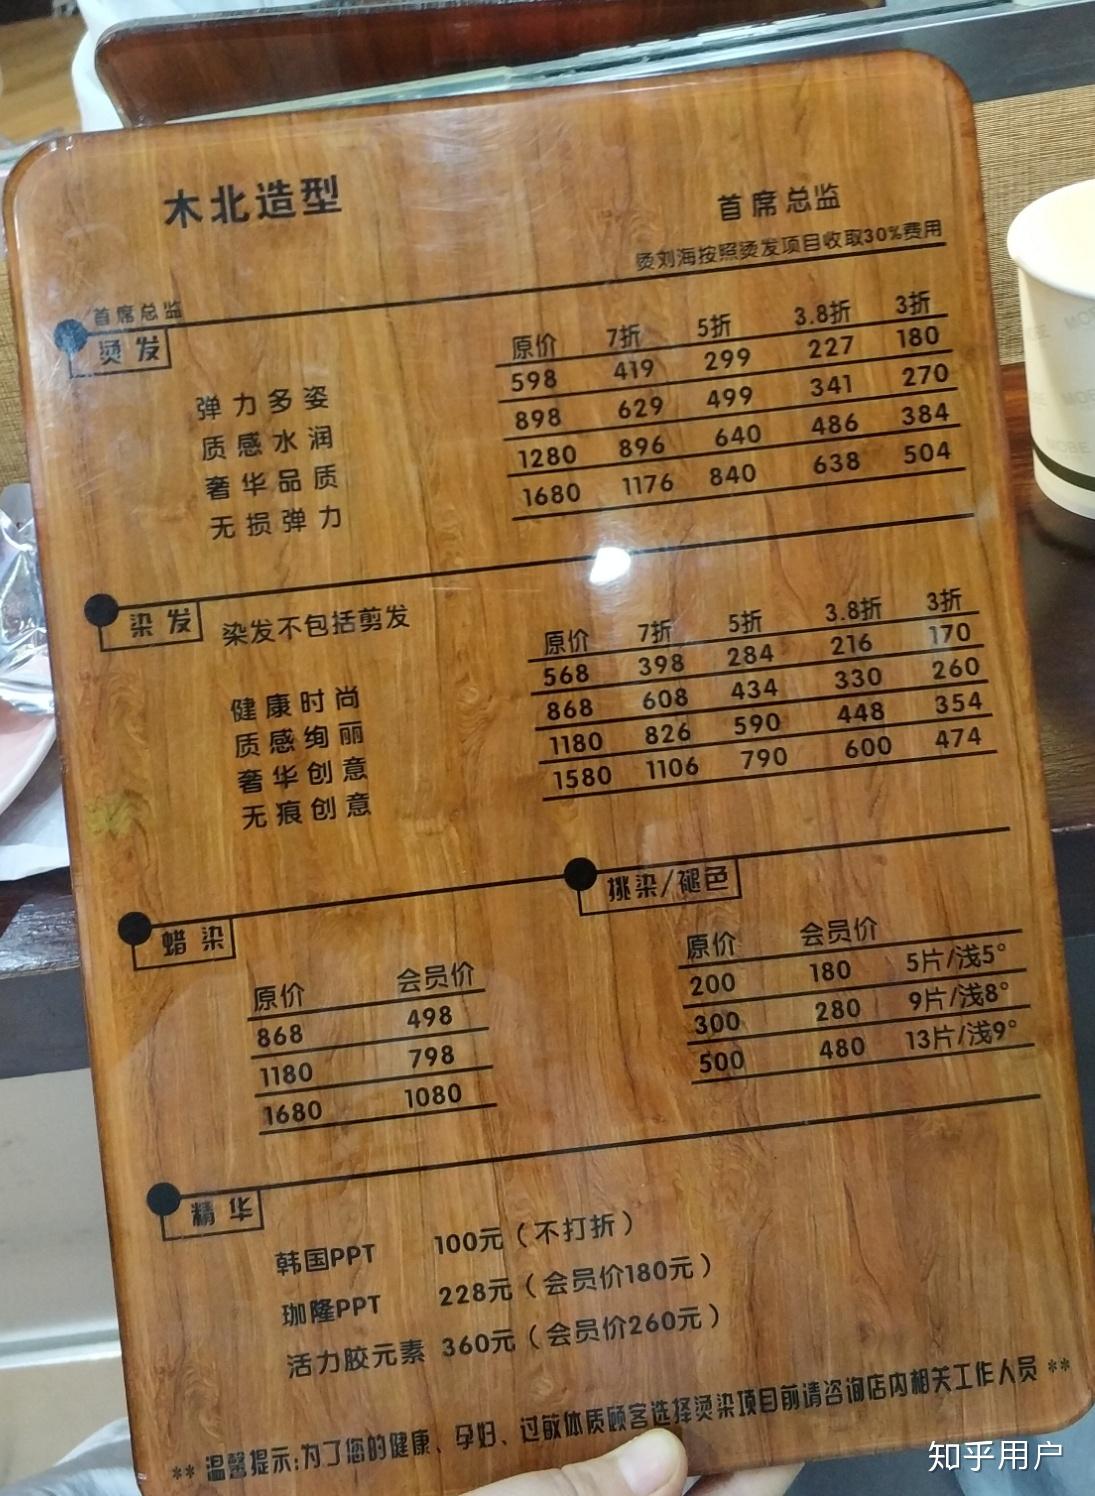 木北造型
首席总监
烫刘海按照烫发项目收取30%费用
首席总监
烫发
原价 7折 5折 3.8折 3折
弹力多姿 598 419 299 227 180
质感水润 898 629 499 341 270
奢华品质 1280 896 640 486 384
无损弹力 1680 1176 840 638 504
染发 染发不包括剪发
原价 7折 5折 3.8折 3折
健康时尚 568 398 284 216 170
质感绚丽 868 608 434 330 260
奢华创意 1180 826 590 448 354
无痕创意 1580 1106 790 600 474
蜡染
原价 会员价
868 498
1180 798
1680 1080
挑染/褪色
原价 会员价
200 180 5片/浅5°
300 280 9片/浅8°
500 480 13片/浅9°
精华
韩国PPT 100元（不打折）
珈隆PPT 228元（会员价180元）
活力胶元素 360元（会员价260元）
** 温馨提示:为了您的健康、孕妇、过敏体质顾客选择烫染项目前请咨询店内相关工作人员 **
知乎用户